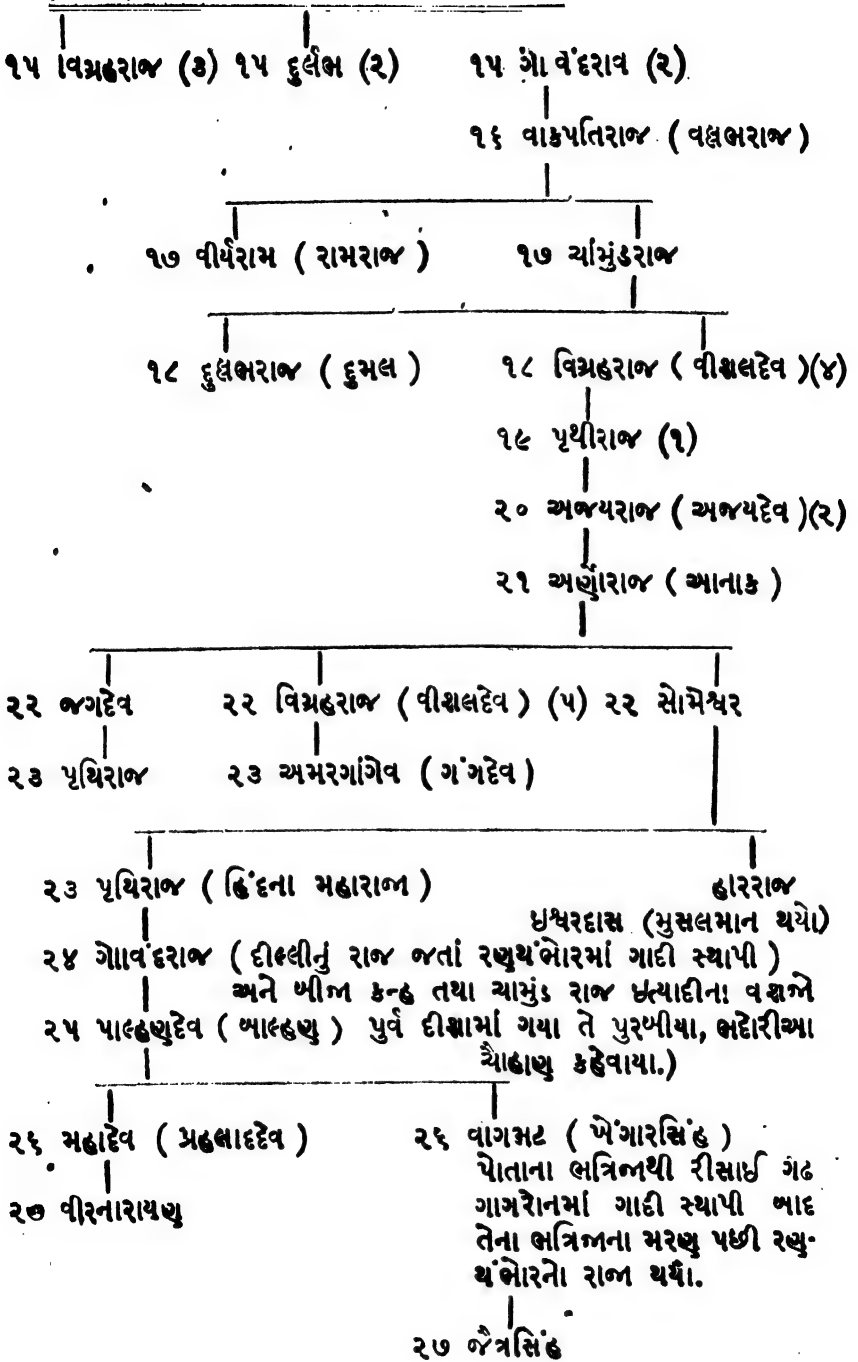 ૧૫ વિગ્રહરાજ (૩) ૧૫ દુર્લભ (૨) ૧૫ ગોવંદરાવ (૨)
૧૬ વાકપતિરાજ (વલ્લભરાજ)
૧૭ વીર્યરામ (રામરાજ) ૧૭ ચામુંડરાજ
૧૮ દુલભરાજ (દુમલ) ૧૮ વિગ્રહરાજ (વીશલદેવ)(૪)
૧૯ પૃથીરાજ (૧)
૨૦ અજયરાજ (અજયદેવ)(૨)
૨૧ અર્ણોરાજ (આનાક)
૨૨ જગદેવ ૨૨ વિગ્રહરાજ (વીશલદેવ) (૫) ૨૨ સોમેશ્વર
૨૩ પૃથિરાજ ૨૩ અમરગાંગેવ (ગંગદેવ)
૨૩ પૃથિરાજ (હિંદના મહારાજા) હારરાજ
ઇશ્વરદાસ (મુસલમાન થયો)
૨૪ ગોવિંદરાજ (દીલ્લીનું રાજ જતાં રણથંભોરમાં ગાદી સ્થાપી)
અને બીજા કન્હ તથા ચામુંડ રાજ ઇત્યાદીના વશજો
૨૫ પાલ્હણદેવ (બાલ્હણ) પુર્વ દીશામાં ગયા તે પુરબીયા, ભદોરીઆ
ચૈાહાણ કહેવાયા.)
૨૬ મહાદેવ (પ્રહલાદદેવ) ૨૬ વાગભટ (ખેંગારસિંહ)
પોતાના ભત્રિજાથી રીસાઈ ગઢ
ગાગરોનમાં ગાદી સ્થાપી બાદ
તેના ભત્રિજાના મરણ પછી રણ-
થંભોરનો રાજા થયો.
૨૭ વીરનારાયણ
૨૭ જૈત્રસિંહ